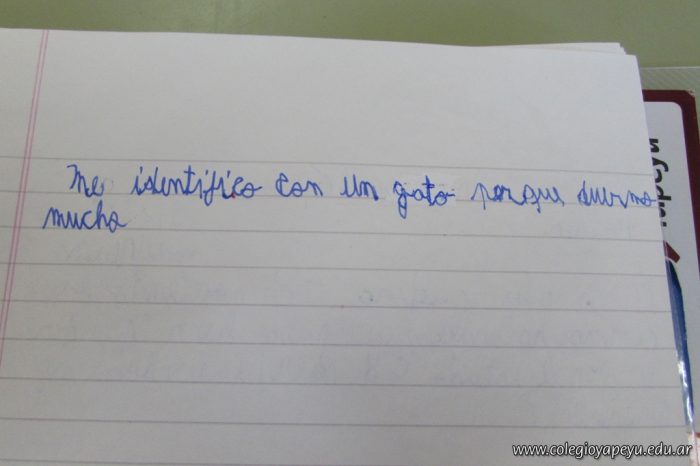 Me identifico con un gato porque duermo
mucho
www.colegioyapeyu.edu.ar